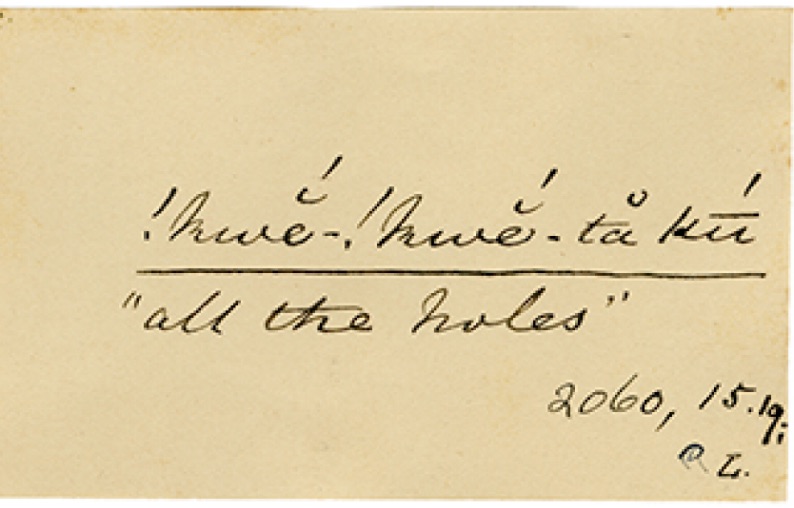 !kwĕ́-!kwĕ́-tå kū́
"all the holes"
2060, 15.19;
L.